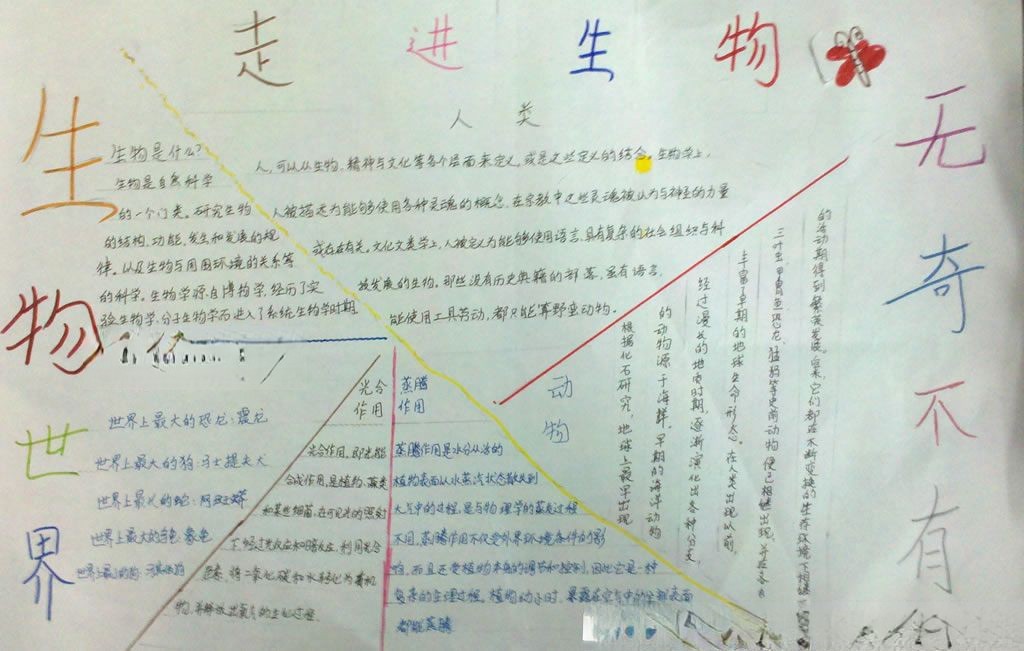 走进生物
生物世界
无奇不有
人类
生物是什么?
生物是自然科学
的一个门类。研究生物
的结构、功能、发生和发展的规
律。以及生物与周围环境的关系等
的科学。生物学源自博物学,经历了实
验生物学、分子生物学而进入了系统生物学时期
人,可以从生物、精神与文化等各个层面来定义,或是这些定义的结合。生物学上,
人被描述为能够使用各种灵魂的概念,在宗教中这些灵魂被认为与神圣的力量
或存在有关。文化人类学上,人被定义为能够使用语言、具有复杂的社会组织与科
技发展的生物。那些没有历史典籍的部落,虽有语言,
能使用工具劳动,都只能算野蛮动物。
世界上最大的恐龙:震龙
世界上最大的狗:马士提夫犬
世界上最大的龟:象龟
光合
作用
光合作用,即光能
合成作用,是植物、藻类
和某些细菌,在可见光的照射
下,经过光反应和暗反应,利用光合
色素,将二氧化碳和水转化为有机
物,并释放出氧气的生化过程
蒸腾
作用
蒸腾作用是水分从活的
植物表面以水蒸汽状态散失到
大气中的过程,是与物理学的蒸发过程
不同,蒸腾作用不仅受外界环境条件的影
响,而且还受植物本身的调节和控制,因此它是一种
复杂的生理过程。植物幼小时,暴露在空气中的全部表面
都能蒸腾
动物
根据化石研究,地球上最早出现
的动物源于海洋。早期的海洋动物
经过漫长的地质时期,逐渐演化出各种分支,
丰富了早期的地球生命形态。在人类出现以前,
三叶虫、甲胄鱼、恐龙、猛犸等史前动物便已相继出现,并在各自
的活动期得到繁荣发展。后来,它们都在不断变换的生存环境下相继